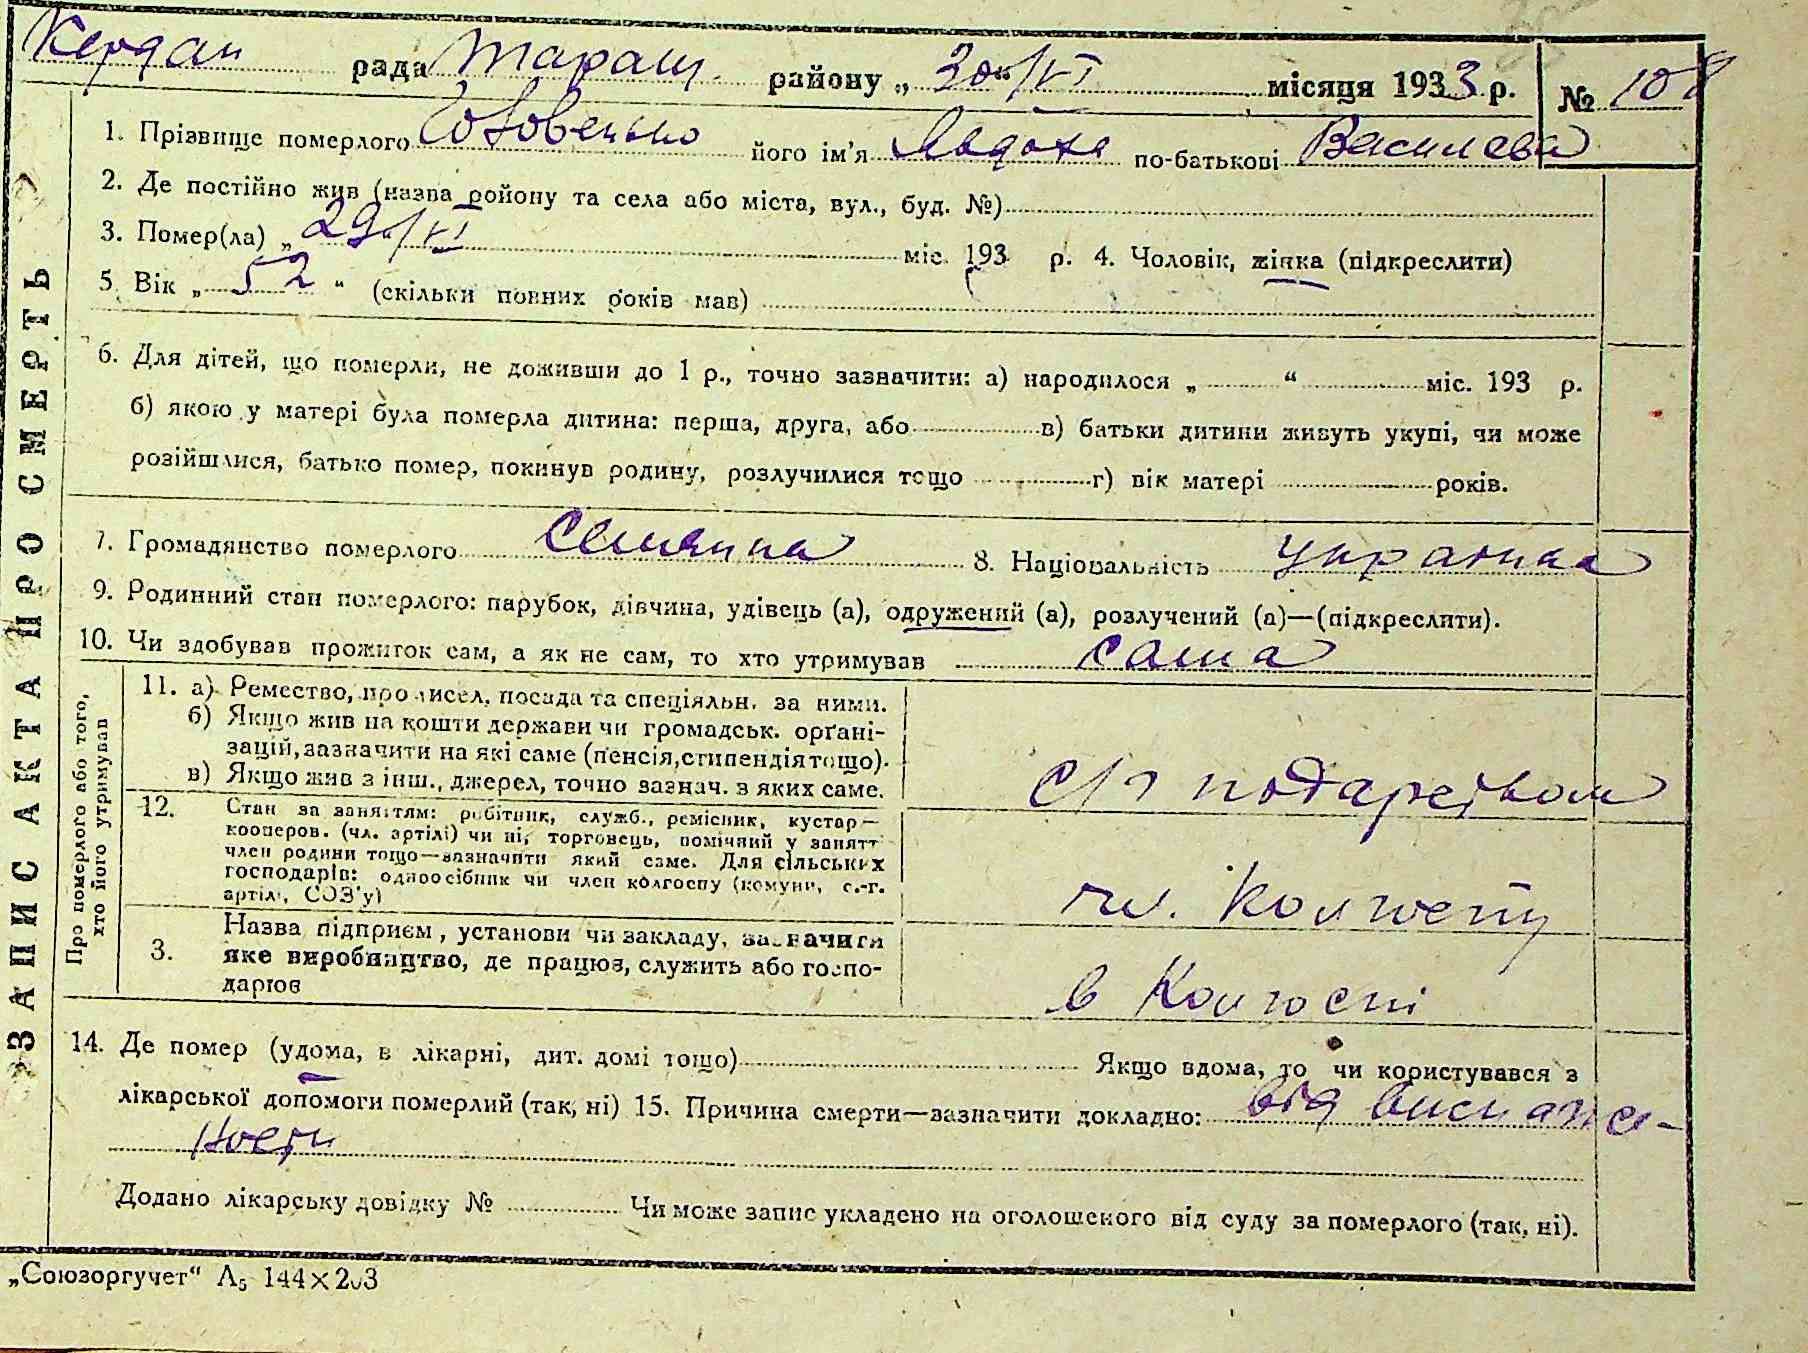 Кердан рада Тараш. району „ 30 “/VI місяця 1933 р. № 108
1. Прізвище померлого його ім'я Явдоха по-батькові Василева
2. Де постійно жив (назва ройону та села або міста, вул., буд. №)
3. Помер(ла) „ 29 “/VI міс. 193 р. 4. Чоловік, жінка (підкреслити)
5. Вік „ 52 “ (скільки повних років мав)
6. Для дітей, що померли, не доживши до 1 р., точно зазначити: а) народилося „ “ міс. 193 р.
б) якою у матері була померла дитина: перша, друга, або в) батьки дитини живуть укупі, чи може
розійшлися, батько помер, покинув родину, розлучилися тощо г) вік матері років.
7. Громадянство померлого селянка 8. Національність українка
9. Родинний стан померлого: парубок, дівчина, удівець (а), одружений (а), розлучений (а)—(підкреслити).
10. Чи здобував прожиток сам, а як не сам, то хто утримував сама
ЗАПИС АКТА ПРО СМЕРТЬ
Про померлого або того,
хто його утримував
11. а) Ремество, промисел, посада та спеціяльн. за ними.
б) Якщо жив на кошти держави чи громадськ. орґані-
зацій, зазначити на які саме (пенсія, стипендія тощо).
в) Якщо жив з інш., джерел, точно зазнач. з яких саме.
с/г
12. Стан за заняттям: робітник, служб., ремісник, кустар—
кооперов. (чл. артілі) чи ні, торговець, помічний у занятт
член родини тощо—зазначити який саме. Для сільських
господарів: одноосібник чи член колгоспу (комуни, с.-г.
артілі, СОЗ'у)
чл. Колгоспу
3. Назва підприєм, установи чи закладу, зазначити
яке виробництво, де працюв, служить або госпо-
дарюв
в Колгоспі
14. Де помер (удома, в лікарні, дит. домі тощо) Якщо вдома, то чи користувався з
лікарської допомоги померлий (так, ні) 15. Причина смерти—зазначити докладно: від виснаже-
ности
Додано лікарську довідку № Чи може запис укладено на оголошеного від суду за померлого (так, ні).
„Союзоргучет“ А₅ 144×203